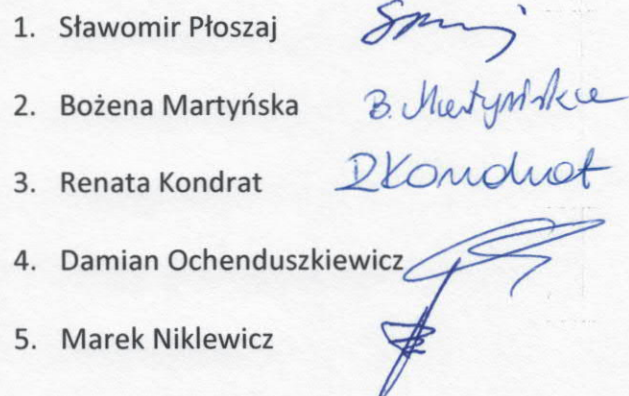 1. Sławomir Płoszaj
2. Bożena Martyńska B. Martyńska
3. Renata Kondrat RKondrat
4. Damian Ochenduszkiewicz
5. Marek Niklewicz